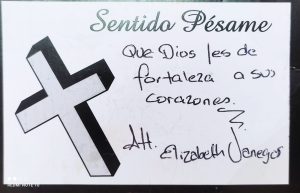 Sentido Pésame
Que Dios les de
fortaleza a sus
corazones.
Att. Elizabeth Vanegas
REDMI NOTE 10